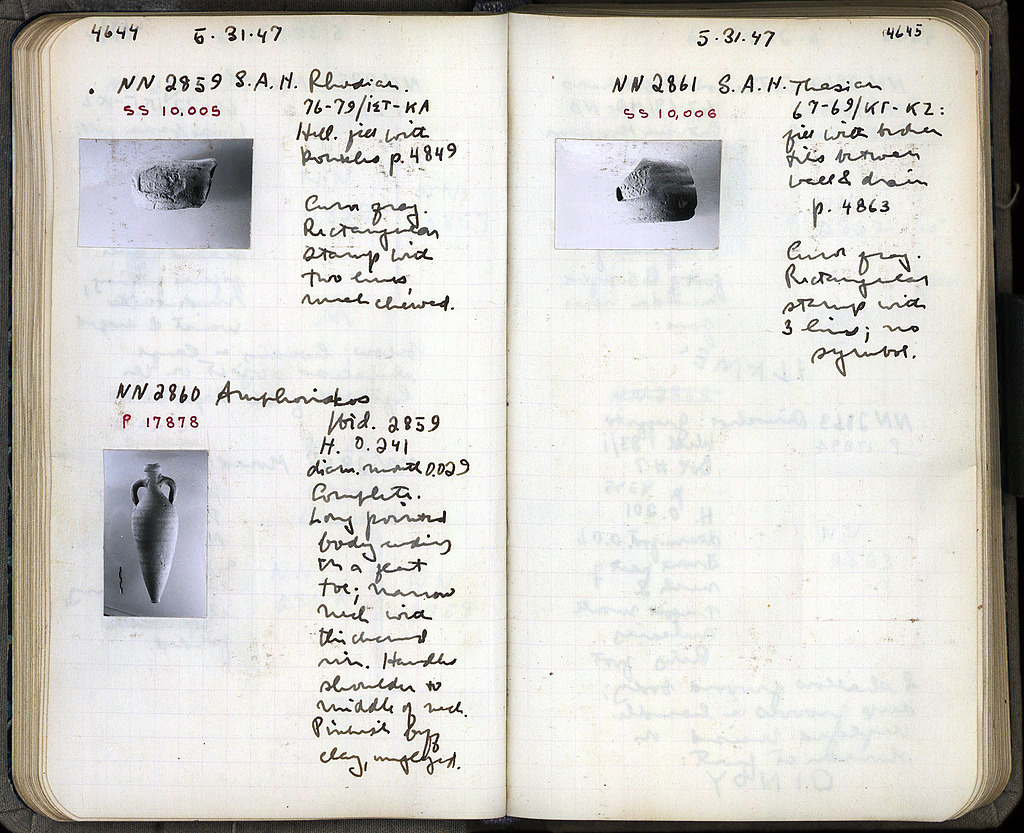 4644 5.31.47
NN 2859 S.A.H. Rhodian.
SS 10,005
76-79/ΙΣΤ-ΚΑ
Hell. fill with
p. 4849
Curve gray.
Rectangular
stamp with
two lines,
much chewed.
NN 2860 Amphoriskos
P 17878
Ibid. 2859
H. 0.241
diam. mouth 0.029
Complete.
Long pointed
body ending
in a neat
toe; narrow
neck with
thickened
rim. Handles
shoulder to
middle of neck.
Pinkish buff
clay, unglazed.
5.31.47 4645
NN 2861 S.A.H. Thasian
SS 10,006
67-69/ΚΓ-ΚΖ:
fill with broken
tiles between
well & drain
p. 4863
Curve gray.
Rectangular
stamp with
3 lines; no
symbol.